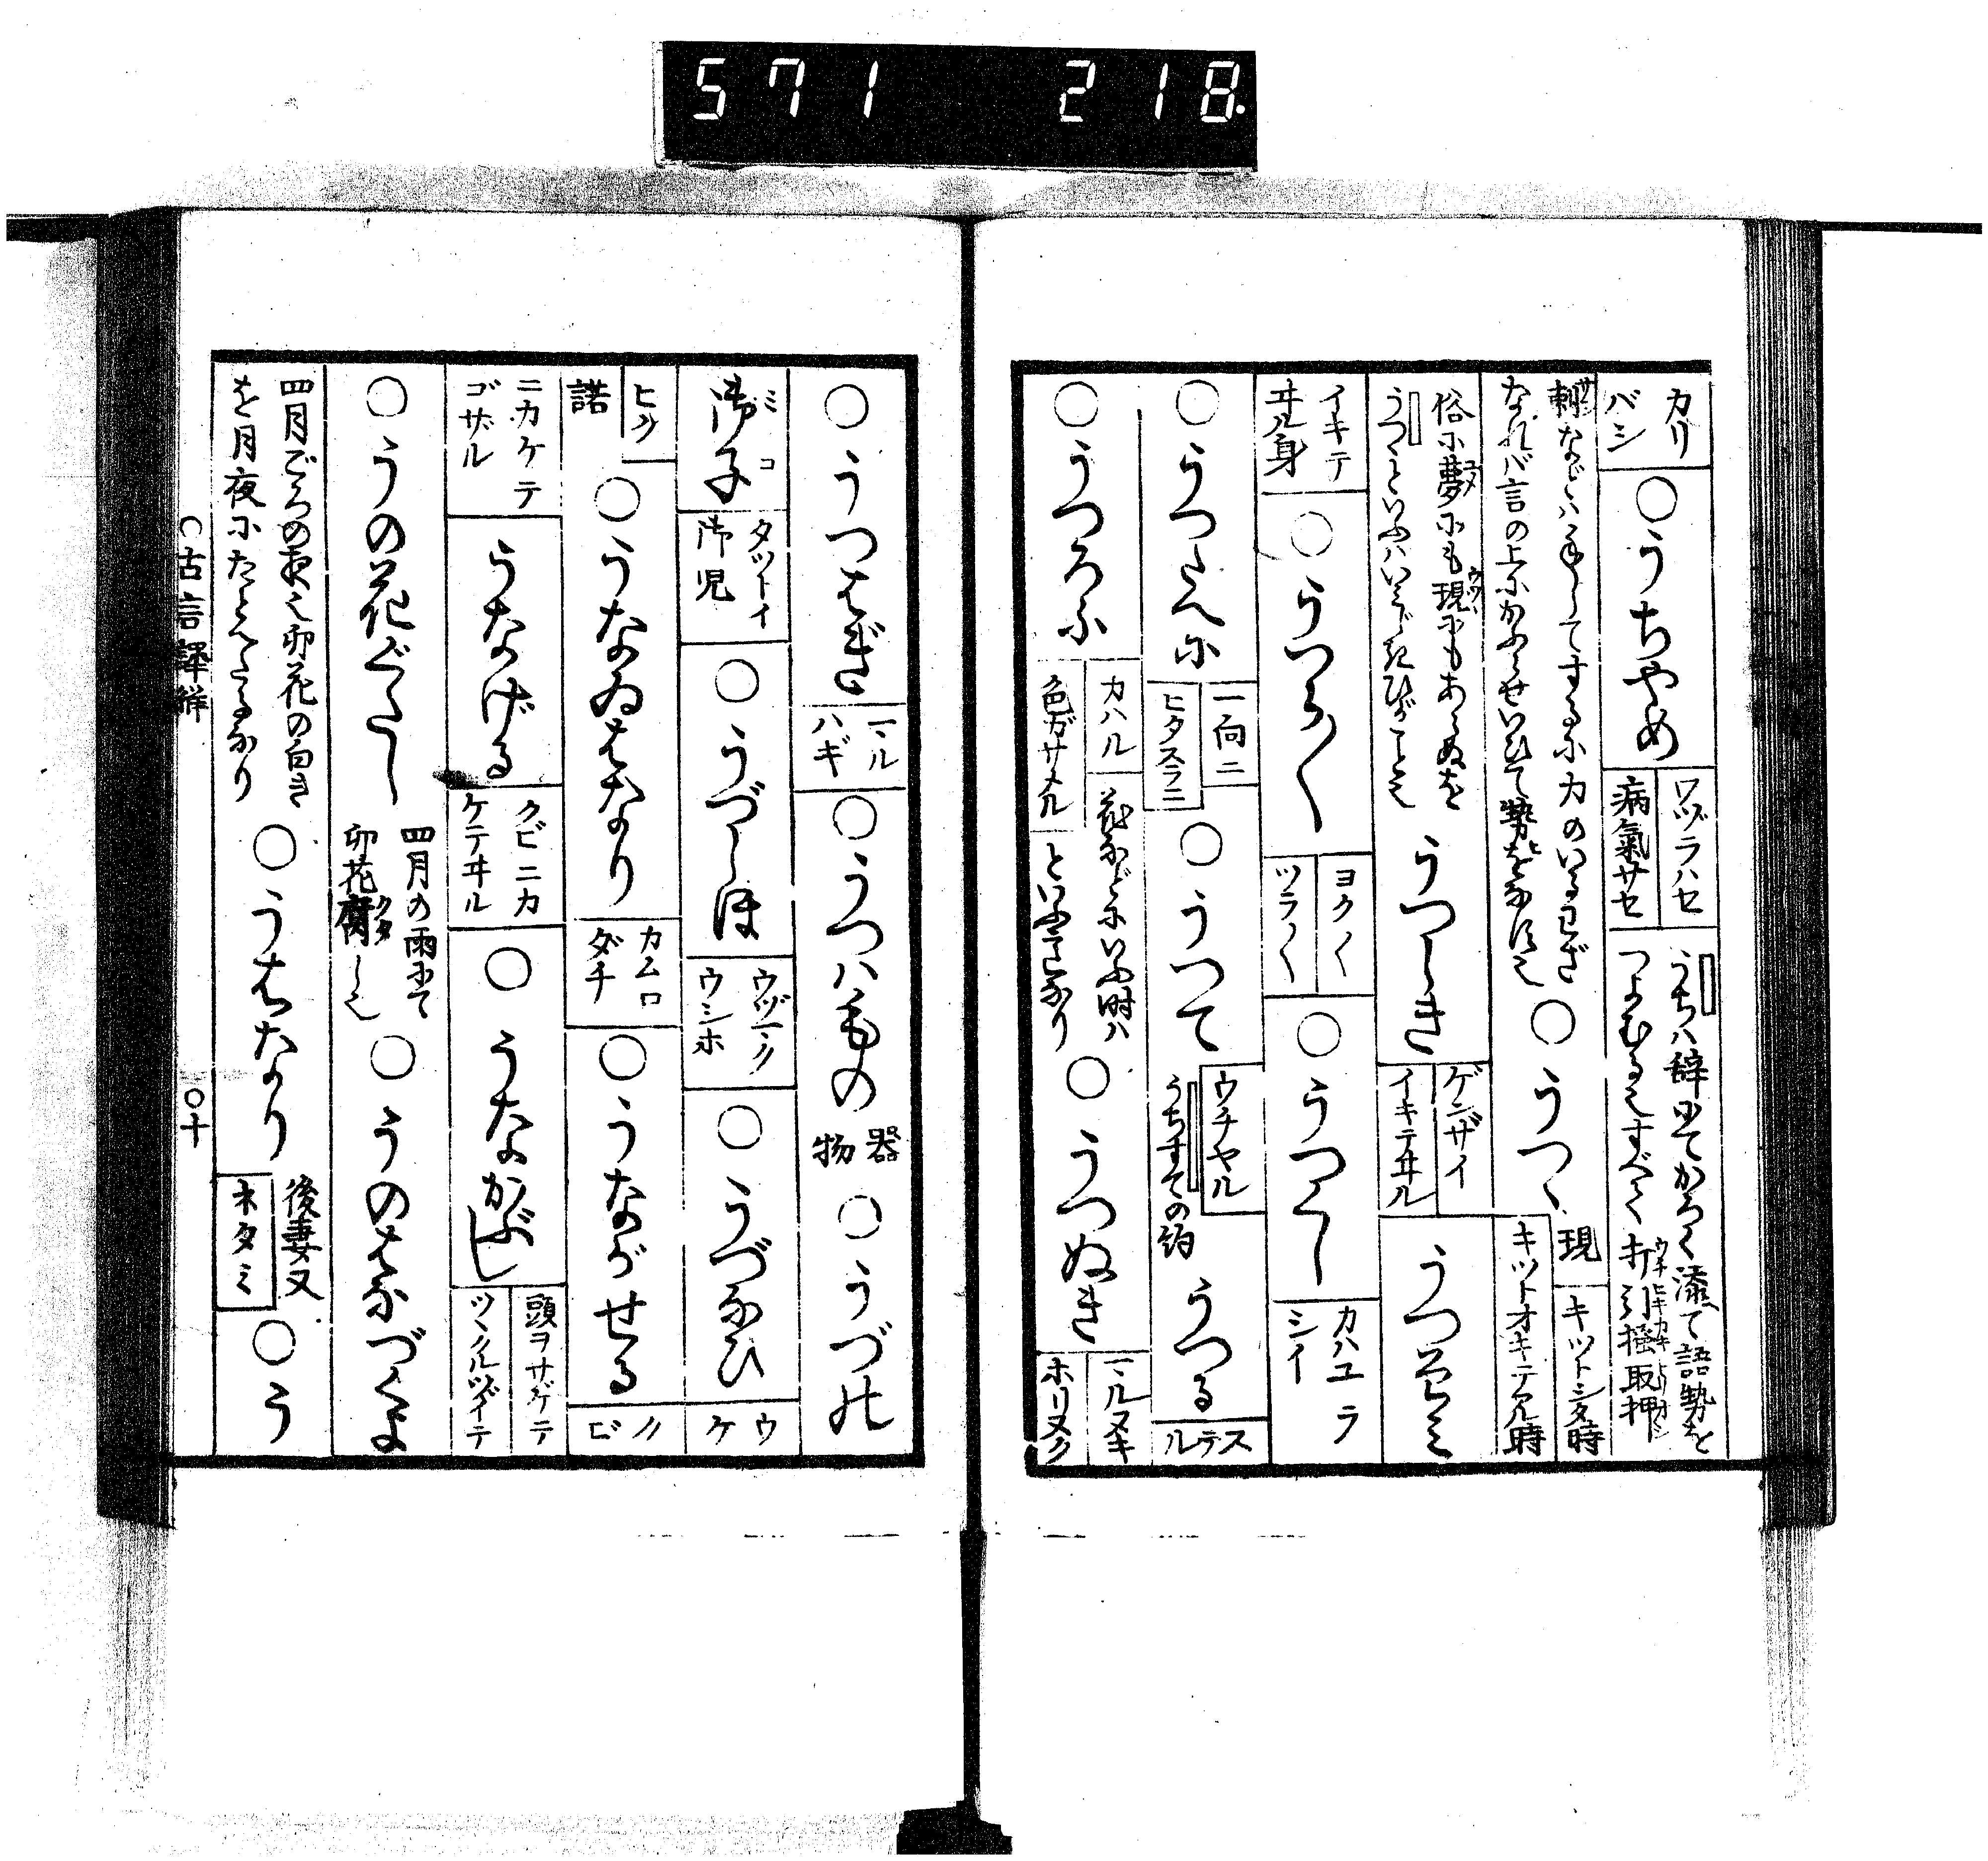 571 218.
カリ
バシ
○うちやめ
ワヅラハセ
病氣サセ
うちハ辞
語勢を
つよむる
すべて打引掻取押
刺など
力のいるわざ
なれバ言の上に
勢を
○うつゝ
現
キツトシタ時
キツトオキテヰル時
俗に夢にも現にもあらぬを
うつゝといふハ
うつしき
ゲンザイ
イキテヰル
うつそミ
イキテ
ヰル身
○うつら〱
ヨク〱
ツラ〱
○うつくし
カハユラ
シイ
○うつたへに
一向ニ
ヒタスラニ
○うつて
ウチヤル
うちすての約
うつる
ステル
○うつろふ
カハル
色ガサメル
花などにいふ時ハ
といふこゝろなり
○うつぬき
マルヌキ
ホリヌク
○うつはぎ
マル
ハギ
○うつハもの
器
物
○うづの
御子
ミコ
タツトイ
御児
○うづしほ
ウヅマク
ウシホ
○うづなひ
ウケ
ヒク
諾
○うなゐはなり
カムロ
ダチ
○うながせる
クビ
ニカケテ
ゴザル
うなげる
クビニカ
ケテヰル
○うなかぶし
頭ヲサゲテ
ウツムイテ
○うの花くたし
四月の雨にて
卯花腐し
○うのはなづくよ
四月ごろの
卯花の白き
を月夜にたとへたるなり
○うはなり
後妻又
ネタミ
○う
○古言譯解
○十